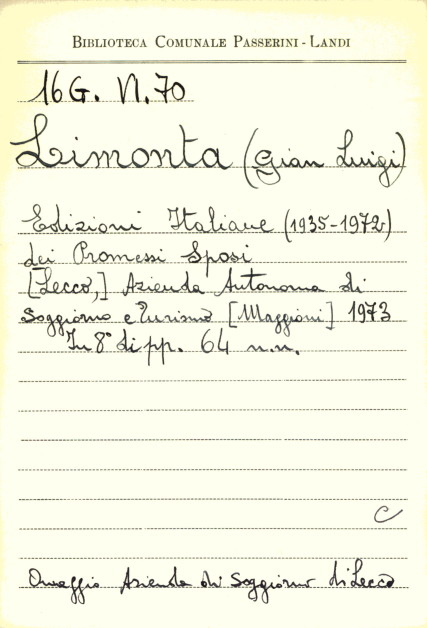 BIBLIOTECA COMUNALE PASSERINI - LANDI
16 G. VI. 70
Limonta (Gian Luigi)
Edizioni Italiane (1935-1972)
dei Promessi Sposi
[Lecco,] Azienda Autonoma di
Soggiorno e Turismo [Maggioni] 1973
In 8° di pp. 64 n.n.
C
Omaggio Azienda di Soggiorno di Lecco